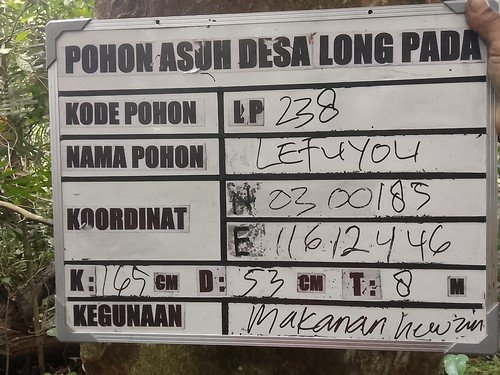 POHON ASUH DESA LONG PADA
KODE POHON LP 238
NAMA POHON LEFUYOU
KOORDINAT N 03 00185
E 116 12446
K: 165 CM D: 53 CM T: 8 M
KEGUNAAN Makanan hewan